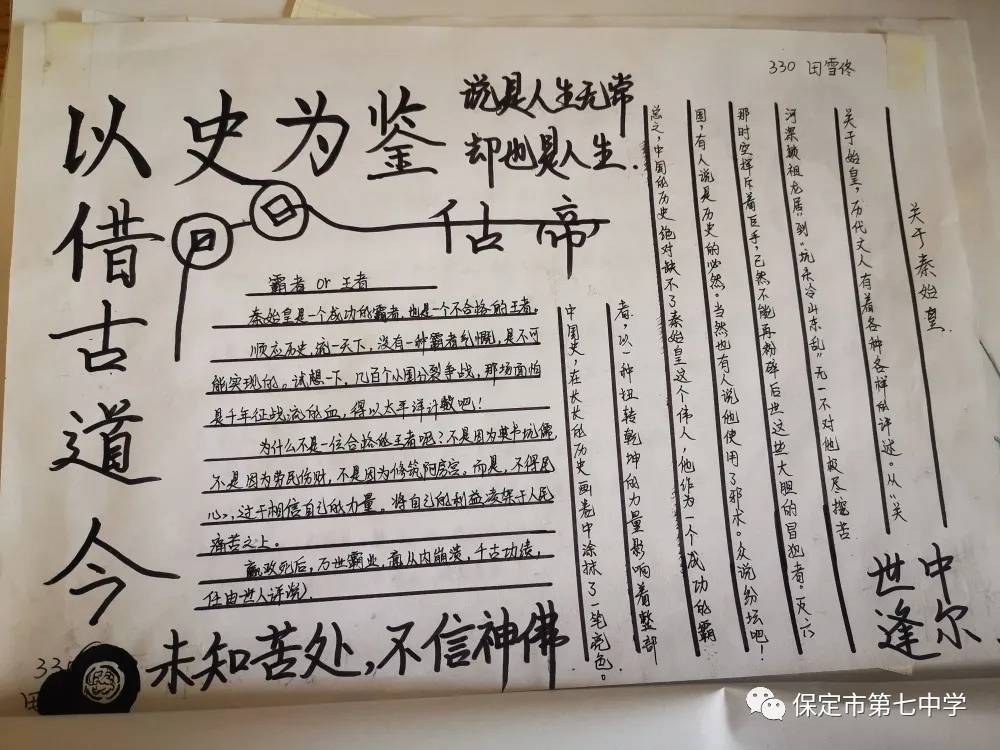 330 田雪佟
以史为鉴
借古道今
说是人生无常
却也是人生.
千古一帝
霸者 or 王者
秦始皇是一个成功的霸者,也是一个不合格的王者。
顺应历史,统一天下,没有一种霸者气慨,是不可
能实现的。试想一下,几百个小国分裂争战,那场面怕
是千年征战流的血,得以太平洋计数吧!
为什么不是一位合格的王者呢?不是因为焚书坑儒,
不是因为劳民伤财,不是因为修筑阿房宫。而是,不得民
心,过于相信自己的力量。将自己的利益凌架于人民
痛苦之上。
嬴政死后,万世霸业,竟从内崩溃,千古功绩,
任由世人评说
关于秦始皇
关于始皇,历代文人有着各种各样的评述。从“关
河空锁祖龙居”到“坑灰冷山东乱”无一不对他极尽挖苦
那时空挥斥着巨手,已然不能再粉碎后世这些大胆的冒犯者。灭六
国,有人说是历史的必然。当然也有人说他使用了邪术。众说纷坛吧!
总之,中国的历史绝对缺不了秦始皇这个伟人,他作为一个成功的霸
者,以一种扭转乾坤的力量影响着整部
中国史,在长长的历史画卷中涂抹了一笔亮色。
世中
逢尔
未知苦处,不信神佛
330
田
保定市第七中学